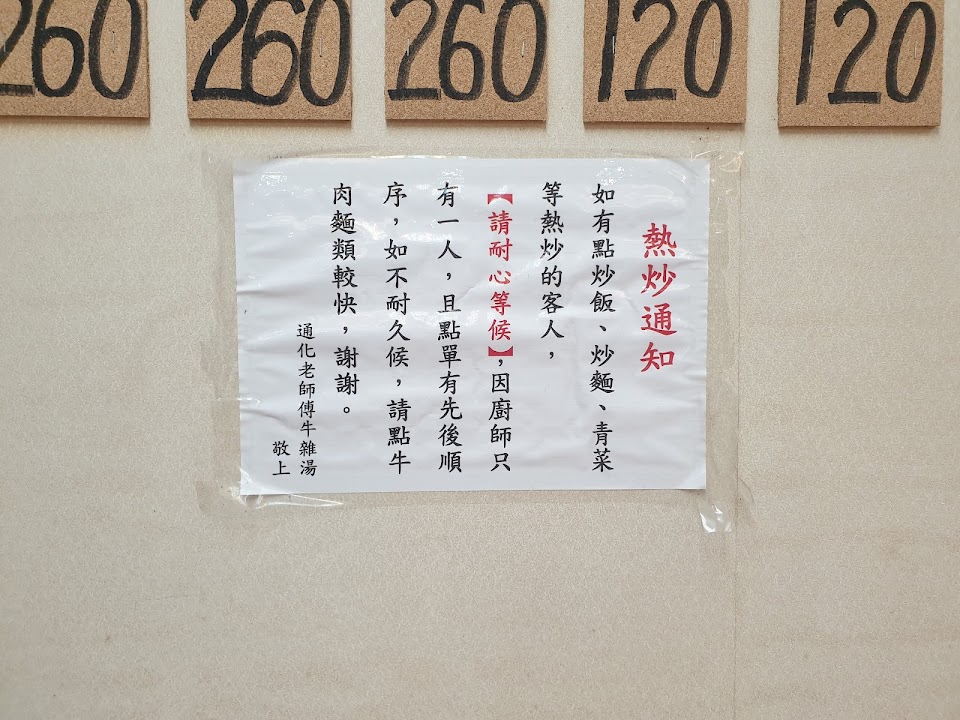 260
260
260
120
120
熱炒通知
如有點炒飯、炒麵、青菜
等熱炒的客人，
【請耐心等候】，因廚師只
有一人，且點單有先後順
序，如不耐久候，請點牛
肉麵類較快，謝謝。
通化老師傅牛雜湯
敬上